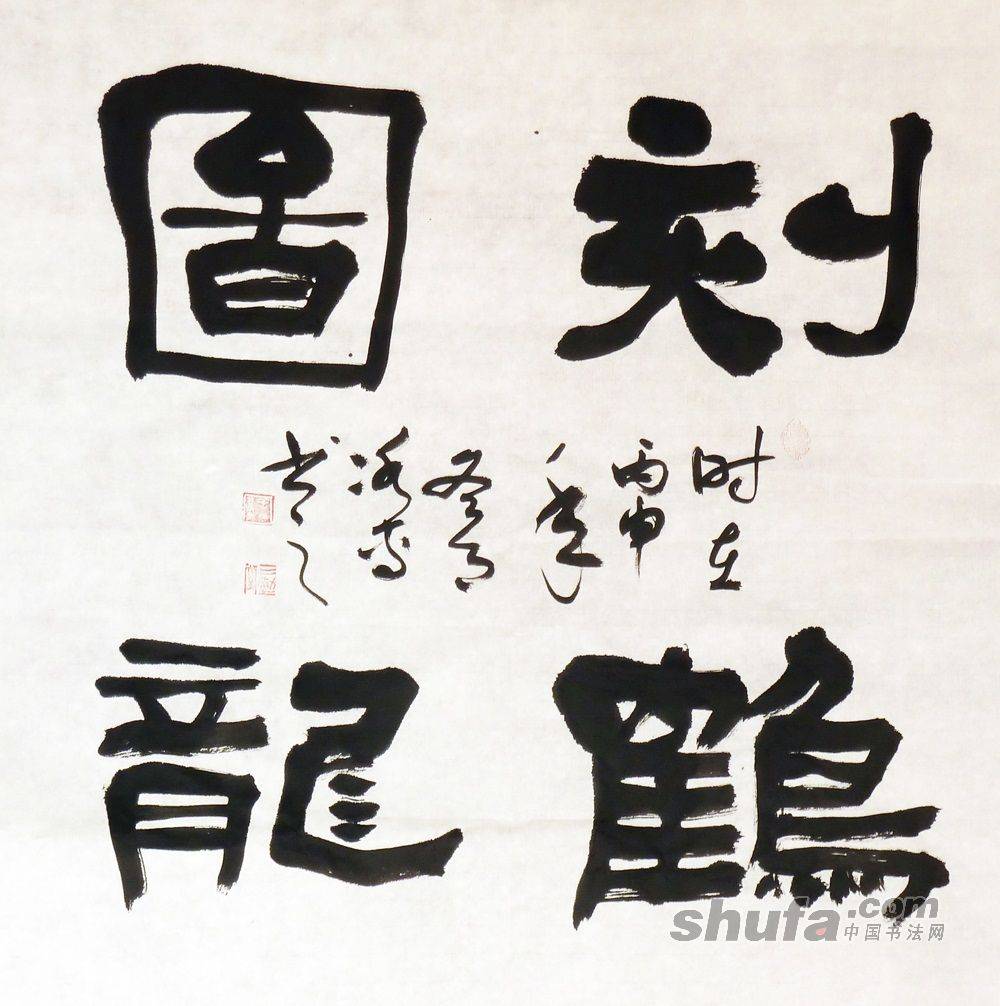 刻鶴
圖龍
时在
丙申
年
冬月
书之
shufa.com
中国书法网